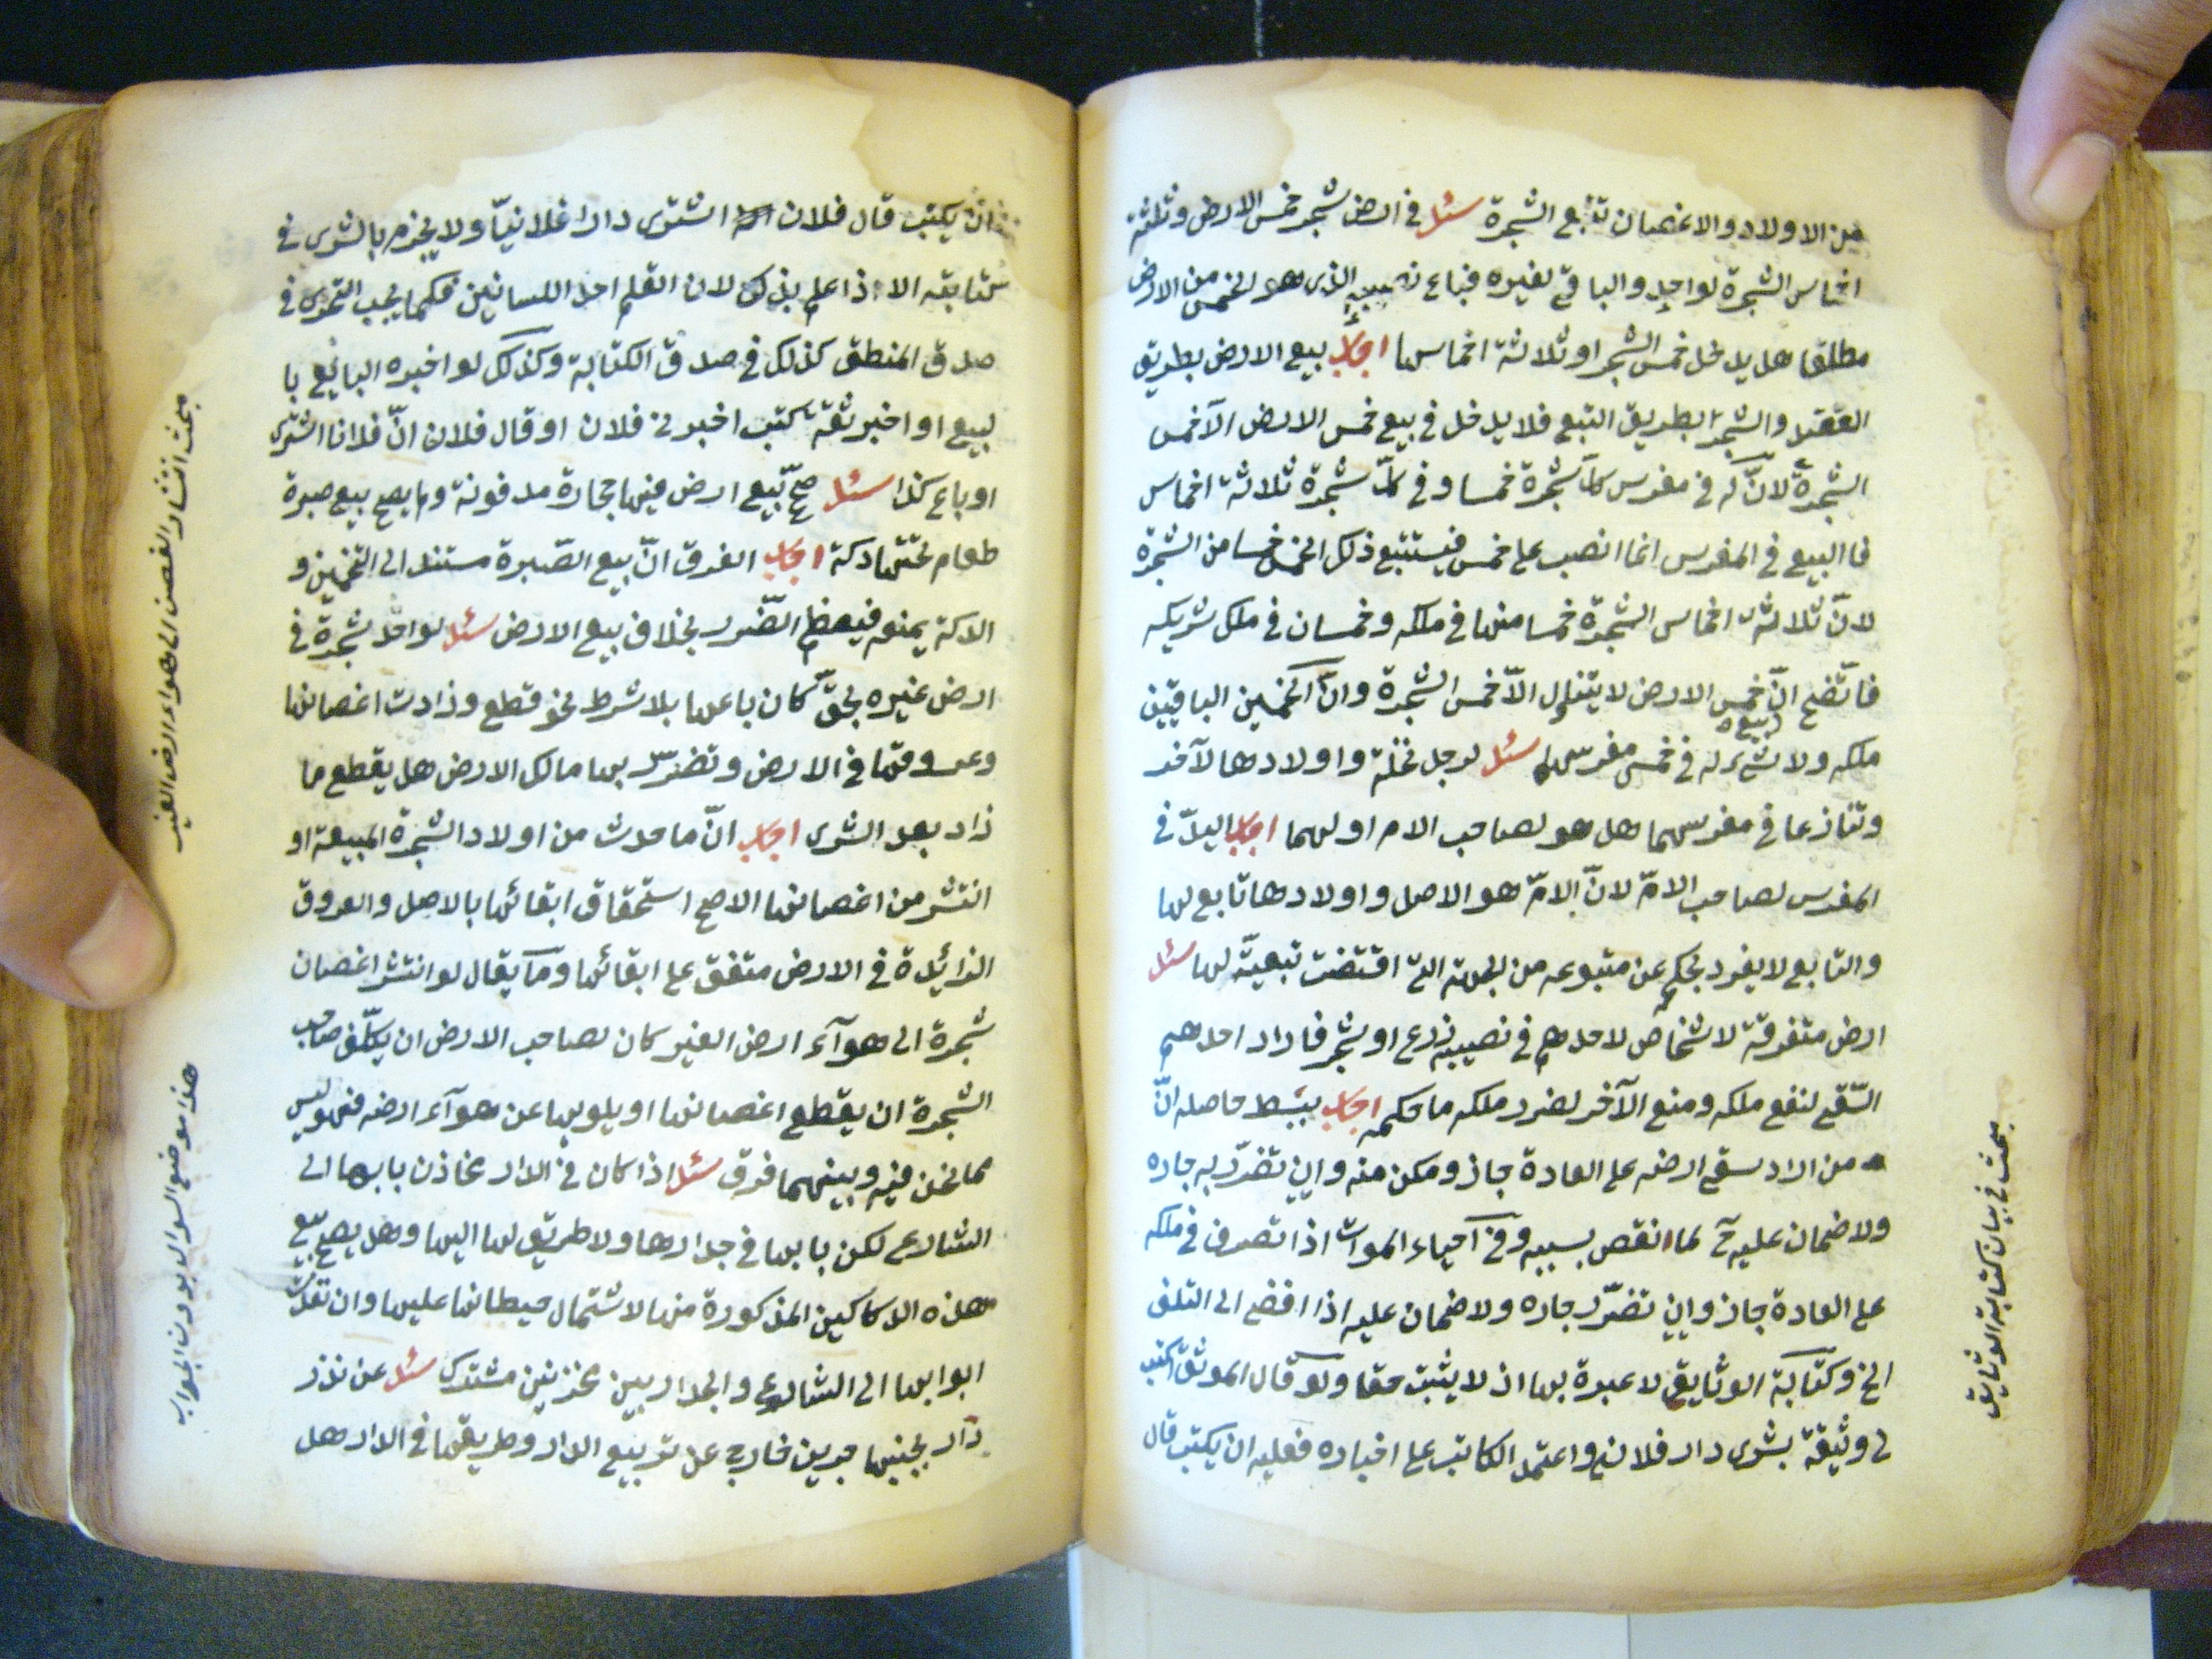 من الاولاد والاغصان تتبع الشجرة سئل في ارض شجر خمس الارض وثلثة
اخماس الشجرة لواحد والباقي لغيره فباع نصيبه الذي هو الخمس من الارض
مطلقا هل يدخل خمس الشجر او ثلاثة اخماسها اجاب بيع الارض بطريق
العقد والشجر بطريق التبع فلا يدخل في بيع خمس الارض الا خمس
الشجرة لان له في مغرس كل شجرة خمسا وفي كل شجرة ثلاثة اخماس
فالبيع في المغرس انما انصب على خمس فيستتبع ذلك الخمس خمسا من الشجرة
لان ثلاثة اخماس الشجرة خمسا منها في ملكه وخمسان في ملك شريكه
فاتضح ان بيع خمس الارض لا يتناول الا خمس الشجرة وان الخمسين الباقيين
ملكه ولا شيء له في خمس مغرسها سئل لرجل نخلة واولادها لآخر
وتنازعا في مغرسهما هل هو لصاحب الام او لهما اجاب اليد في
المغرس لصاحب الام لان الام هو الاصل واولادها تابع لها
والتابع لا يفرد بحكم عن متبوعه من الجهة التي اقتضت تبعيته لها سئل
ارض متفرقة لاشخاص لاحدهم في نصيبه زرع او شجر فاراد احدهم
السقي لنفع ملكه ومنع الآخر لضرر ملكه ما حكمه اجاب ببسط حاصله ان
من اراد سقي ارضه على العادة جاز ومكن منه وان تضرر به جاره
ولا ضمان عليه لما انقص بسببه وفي احياء الموات اذا تصرف في ملكه
على العادة جاز وان تضرر جاره ولا ضمان عليه اذا افضى الى التلف
الخ وكتابة الوثايق لا عبرة بها اذ لا يثبت حقا ولو قال الموثق اكتب
لي وثيقة بشرى دار فلان واعتمد الكاتب على اخباره فعليه ان يكتب قال
مبحث في بيان كتابة الوثايق
ان يكتب قال فلان اشترى دارا فلانيا ولا يجزم بالشرى في
كتابته الا اذا علم بذلك لان القلم احد اللسانين فكما يجب التحرى في
صدق المنطق كذلك في صدق الكتابة وكذلك لو اخبره البائع با
لبيع او اخبر ثقة كتب اخبرني فلان او قال فلان ان فلانا اشترى
او باع كذا سئل صح بيع ارض فيها حجارة مدفونة ولم يصح بيع صبرة
طعام تحتها دكة اجاب الفرق ان بيع الصبرة مستند الى التخمين و
الدكة يمنعه فيعظم الضرر بخلاف بيع الارض سئل لواحد شجرة في
ارض غيره بحق كان باعها بلا شرط نحو قطع وزادت اغصانها
وعروقها في الارض وتضرر بها مالك الارض هل يقطع ما
زاد بعد الشرى اجاب ان ما حدث من اولاد الشجرة المبيعة او
انتشر من اغصانها الاصح استحقاق ابقائها بالاصل والعروق
الزائدة في الارض متفق على ابقائها وما يقال لو انتشر اغصان
شجرة الى هوآء ارض الغير كان لصاحب الارض ان يكلف صاحب
الشجرة ان يقطع اغصانها او يلويها عن هوآء ارضه فهو ليس
مما نحن فيه وبينهما فرق سئل اذا كان في الدار مخازن بابها الى
الشارع لكن بابها في جدارها ولا طريق لها اليها وهل يصح بيع
هذه الدكاكين المذكورة منها لاشتمال حيطانها عليها وان نقلت
ابوابها الى الشارع والجدار بين مخزنين مشترك سئل عن نذر
دار بجنبها جرين خارج عن تربيع الدار وطريقها في الدار هل
مبحث انتشار الغصن الى هواء ارض الغير
هذا موضع السؤال بدون الجواب